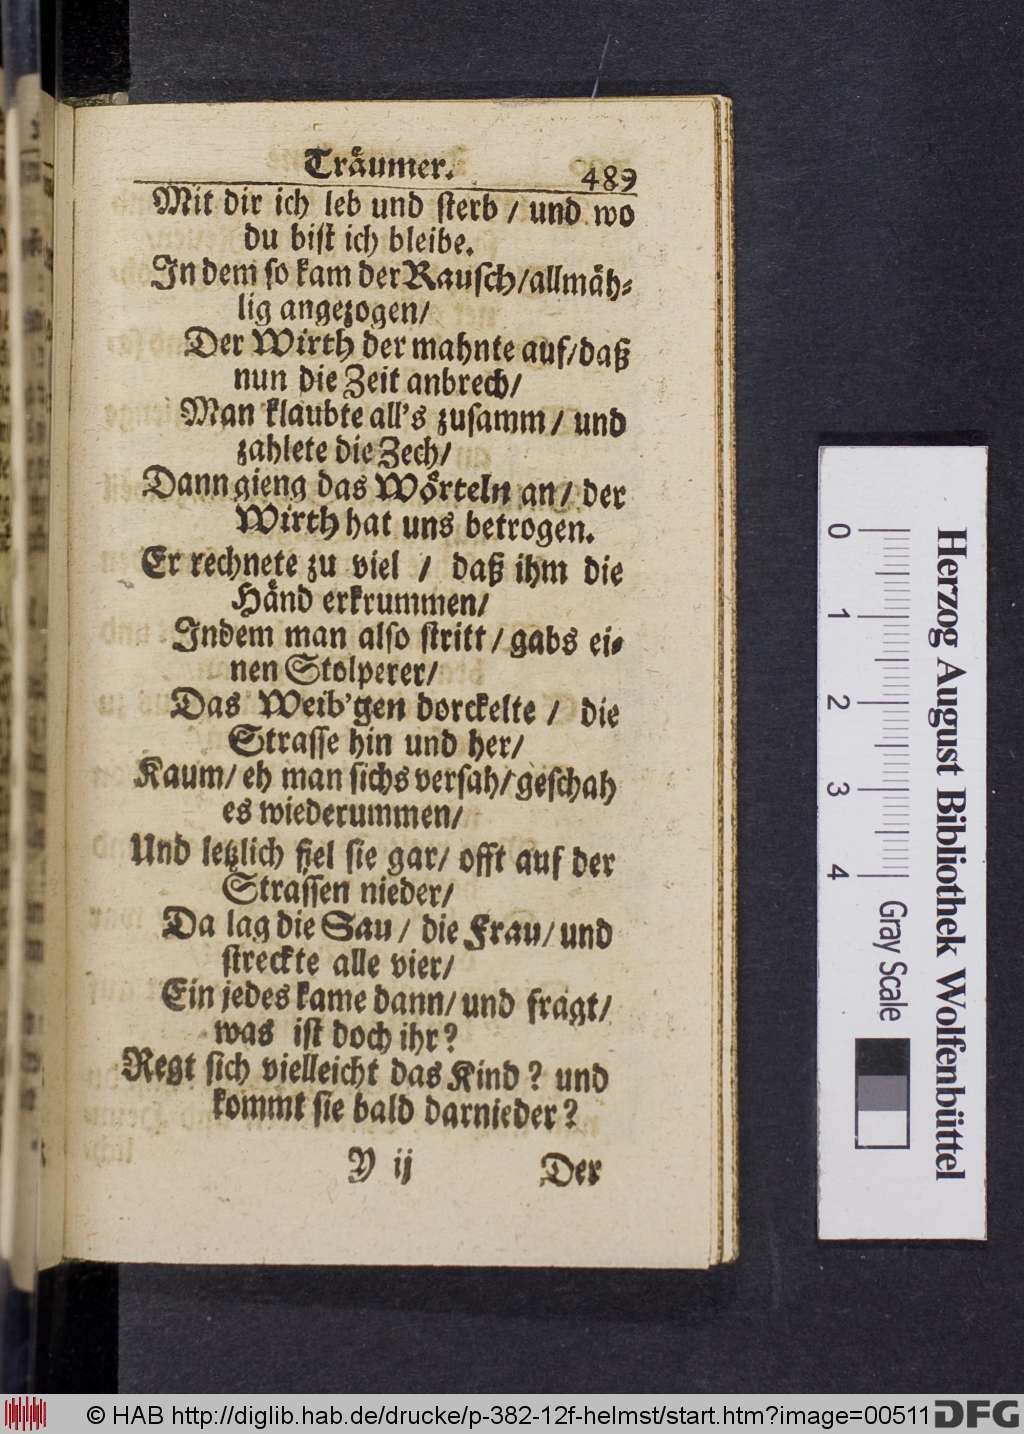 Träumer. 489
Mit dir ich leb und sterb / und wo
du bist ich bleibe.
In dem so kam der Rausch/allmäh⸗
lig angezogen/
Der Wirth der mahnte auf/daß
nun die Zeit anbrech/
Man klaubte all's zusamm / und
zahlete die Zech/
Dann gieng das Wörteln an/ der
Wirth hat uns betrogen.
Er rechnete zu viel / daß ihm die
Händ erkrummen/
Indem man also stritt / gabs ei⸗
nen Stolperer/
Das Weib'gen dorckelte / die
Strasse hin und her/
Kaum/ eh man sichs versah/ geschah
es wiederummen/
Und letzlich fiel sie gar/ offt auf der
Strassen nieder/
Da lag die Sau / die Frau/ und
streckte alle vier/
Ein jedes kame dann/ und fragt/
was ist doch ihr?
Regt sich vielleicht das Kind? und
kommt sie bald darnieder?
Y ij Der
Herzog August Bibliothek Wolfenbüttel
0 1 2 3 4
Gray Scale
© HAB http://diglib.hab.de/drucke/p-382-12f-helmst/start.htm?image=00511
DFG